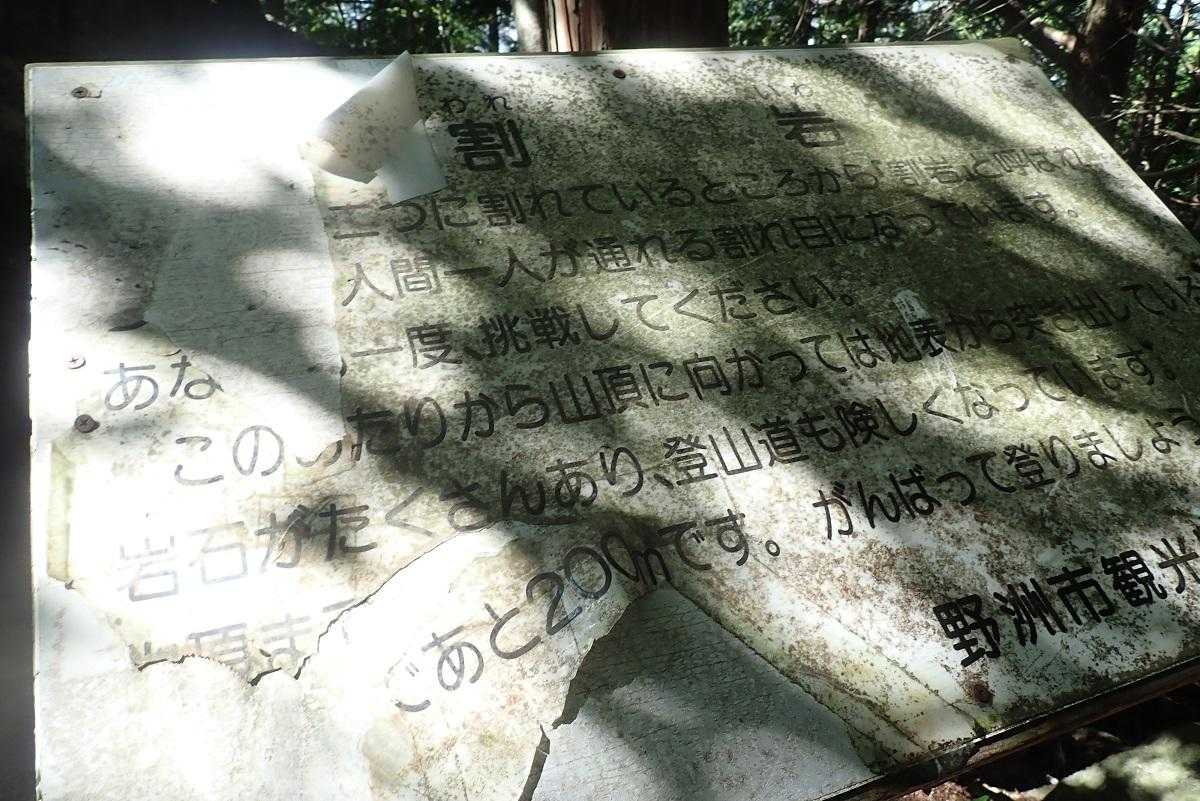 われ いわ
割 岩
二つに割れているところから“割岩”と呼ばれ
人間一人が通れる割れ目になっています。
あな 一度、挑戦してください。
このあたりから山頂に向かっては地表から突き出している
岩石がたくさんあり、登山道も険しくなっています。
山頂まであと200mです。がんばって登りましょう
野洲市観光